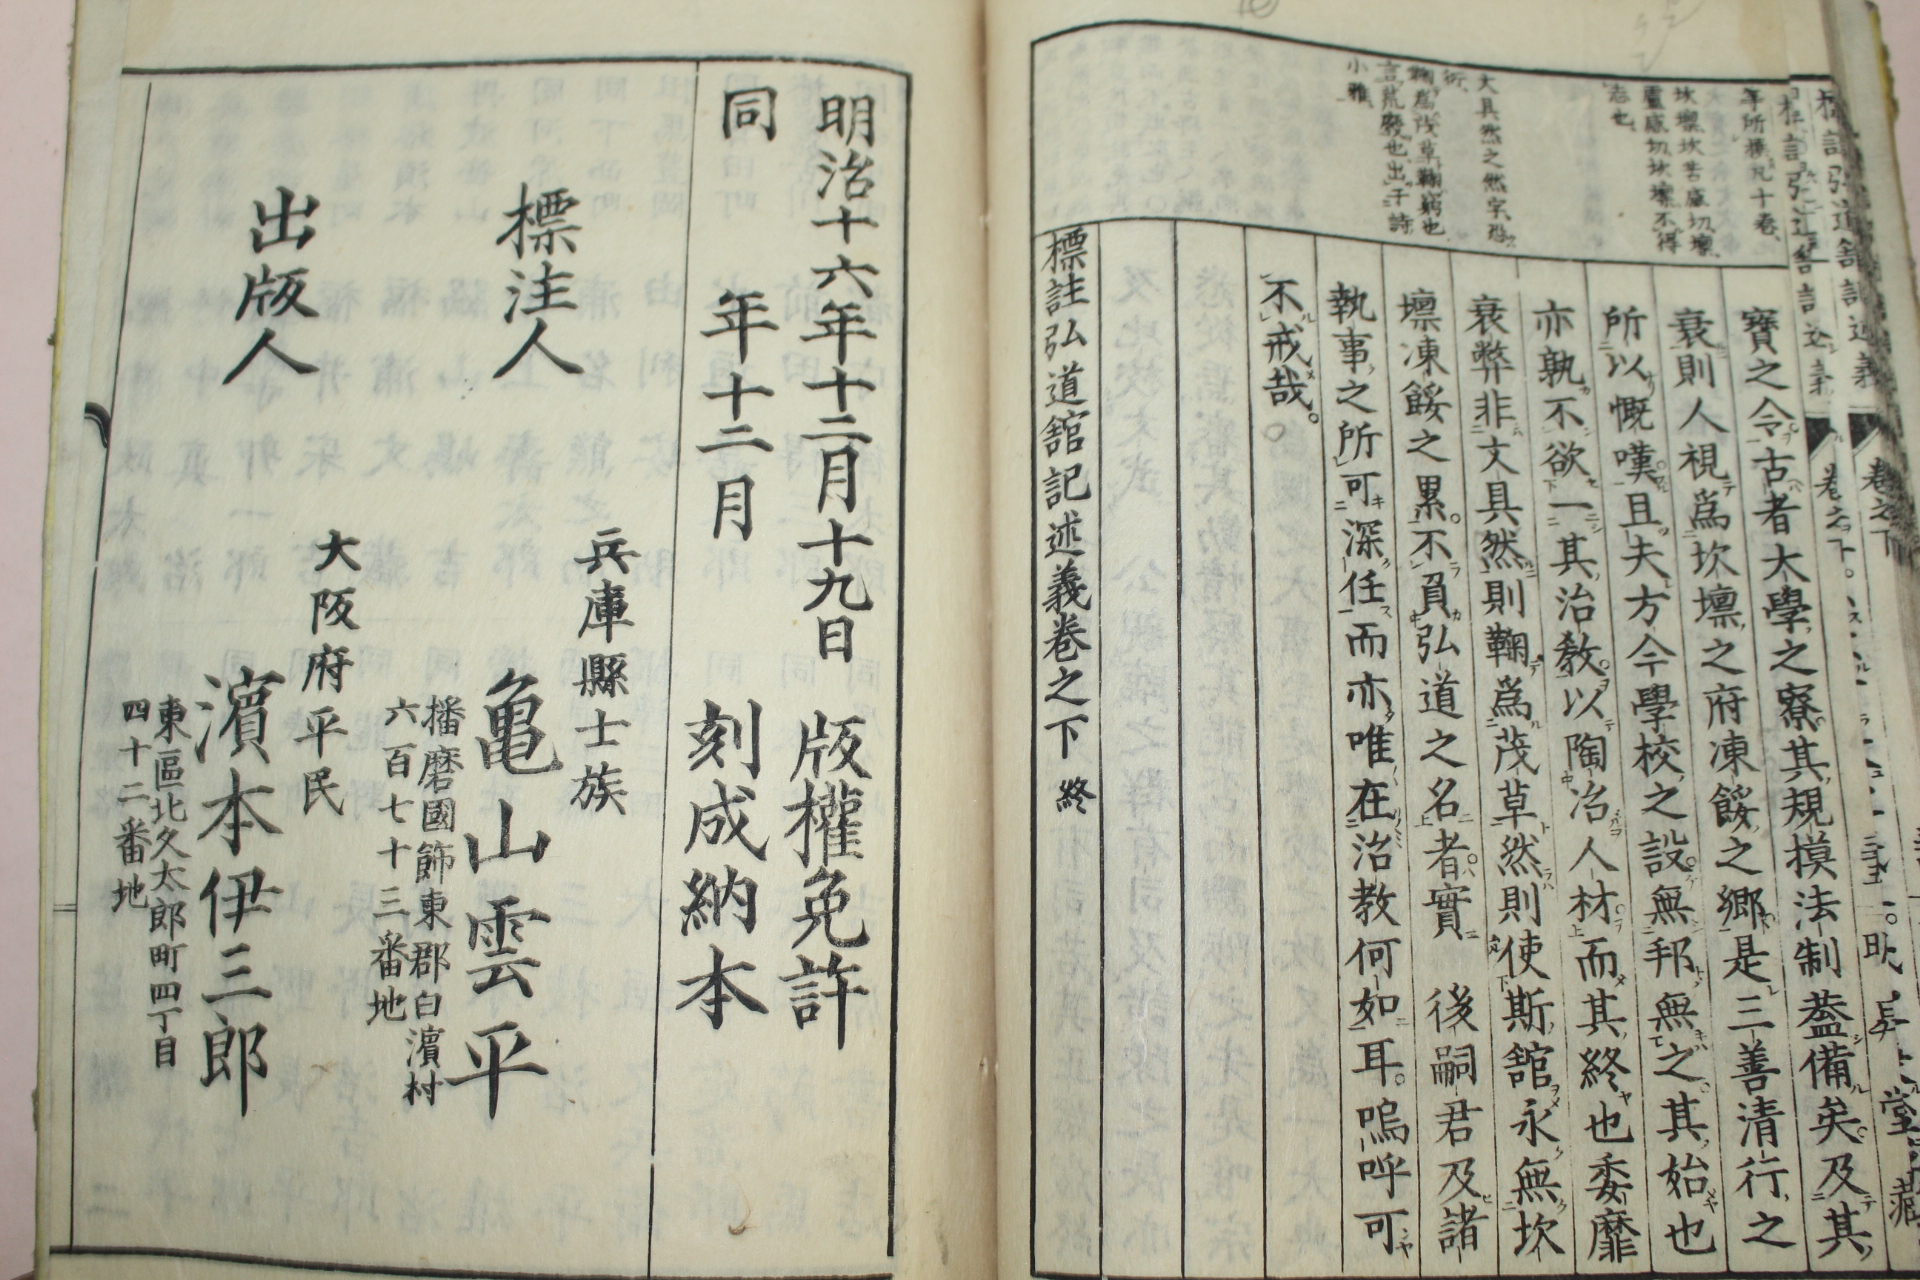 年所撰凡十卷、
坎壈坎苦感切壈
盧感切坎壈不得
志也、
大具然之然字恐
衍、
鞠為茂草鞠窮也
言荒廢也出于詩
小雅、
寶之令古者大學之寮其規摸法制葢備矣及其
衰則人視為坎壈之府凍餒之鄉是三善清行之
所以慨嘆且夫方今學校之設無邦無之其始也
亦孰不欲一其治教以陶冶人材而其終也委靡
衰弊非文具然則鞠為茂草然則使斯舘永無坎
壈凍餒之累不負弘道之名者實 後嗣君及諸
執事之所可深任而亦唯在治教何如耳嗚呼可
不戒哉。
標註弘道舘記述義卷之下 終
明治十六年十二月十九日 版權免許
同 年十二月 刻成納本
兵庫縣士族
標注人 亀山雲平
播磨國飾東郡白濵村
六百七十三番地
大阪府平民
出版人 濵本伊三郎
東區北久太郎町四丁目
四十二番地